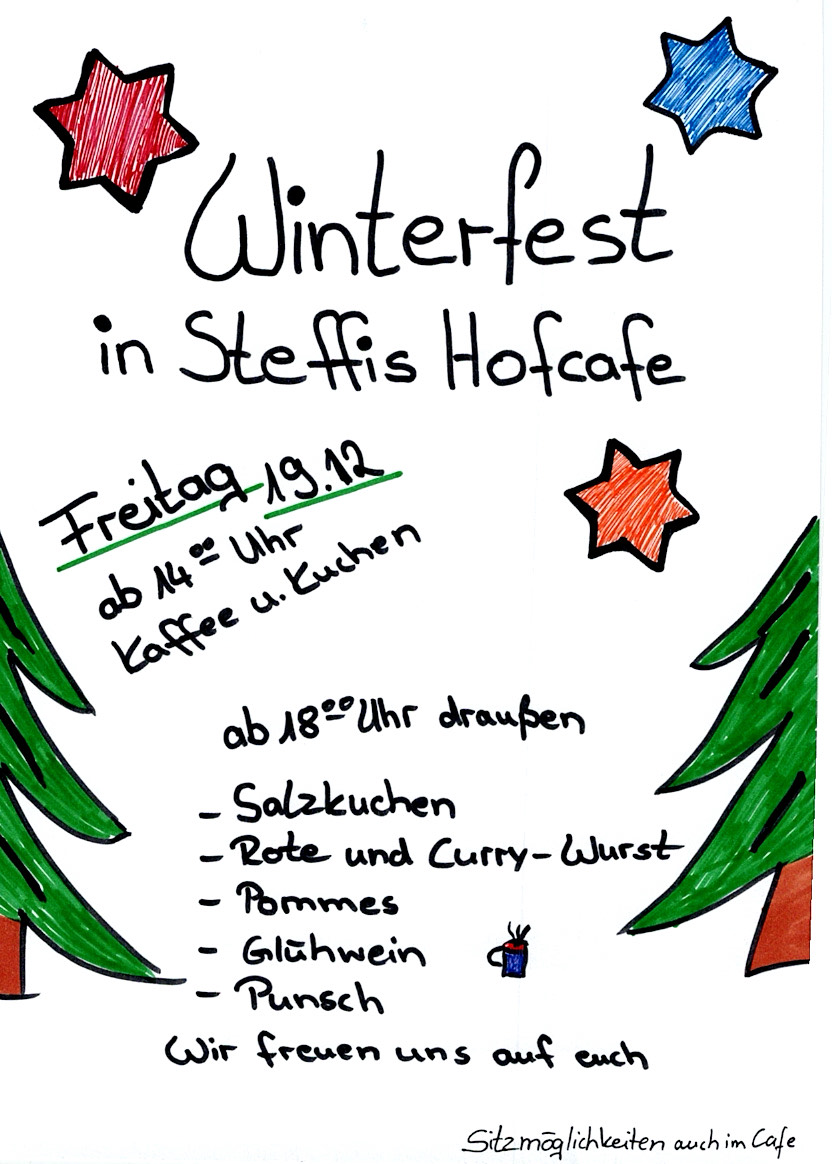 Winterfest
in Steffis Hofcafe
Freitag 19.12
ab 14⁰⁰ Uhr
Kaffee u. Kuchen
ab 18⁰⁰ Uhr draußen
- Salzkuchen
- Rote und Curry-Wurst
- Pommes
- Glühwein
- Punsch
Wir freuen uns auf euch
Sitzmöglichkeiten auch im Cafe